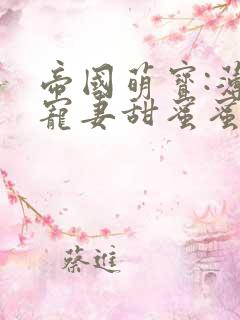 帝國萌寶:薄
寵妻甜蜜蜜
蔡進